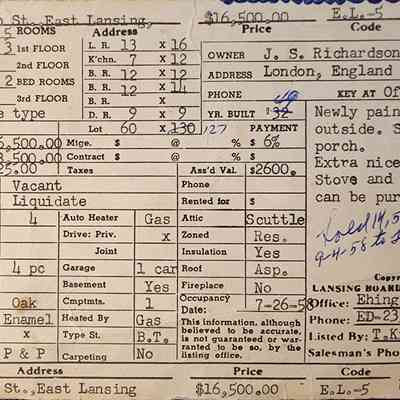 St., East Lansing, $16,500.00 E.L.-5
Price Code
5 ROOMS L. R. 13 x 16 OWNER J. S. Richardson
3 1st FLOOR K'chn. 7 x 12 ADDRESS London, England
2nd FLOOR B. R. 12 x 12
2 BED ROOMS B. R. 12 x 14 PHONE KEY AT Of
3rd FLOOR B. R. x
e type D. R. 9 x 9 YR. BUILT '32 Newly pain
Lot 60 x 130 127 PAYMENT outside. S
6,500.00 Mtge. $ @ % $ 6% porch.
8,500.00 Contract $ @ % $ Extra nice
25.00 Taxes Ass'd Val. $2600. Stove and
Vacant Phone can be pur
Liquidate Rented for $
4 Auto Heater Gas Attic Scuttle Sold 14,5
Drive: Priv. x Zoned Res. 9-4-58 to
Joint Insulation Yes
4 pc Garage 1 car Roof Asp. Copyr
Basement Yes Fireplace No LANSING BOARD
Oak Cmptmts. 1 Occupancy Date: 7-26-58 Office: Ehing
Enamel Heated By Gas This information, although Phone: ED-23
x Type St. B.T. believed to be accurate, Listed By: T.K
P & P Carpeting No is not guaranteed or war-
ranted to be so, by the Salesman's Phon
listing office.
Address Price Code
St., East Lansing $16,500.00 E.L.-5